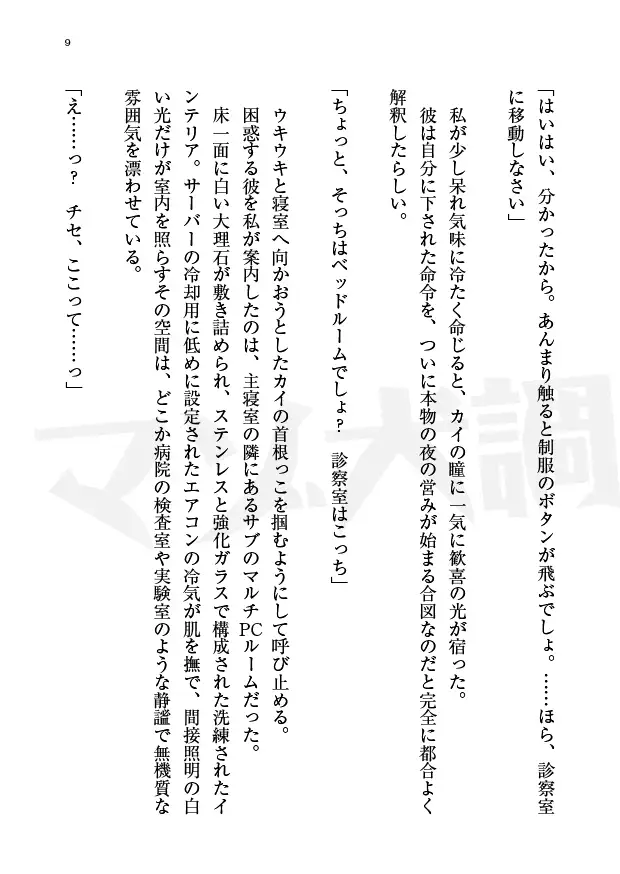 9
「はいはい、分かったから。あんまり触ると制服のボタンが飛ぶでしょ。……ほら、診察室
に移動しなさい」
私が少し呆れ気味に冷たく命じると、カイの瞳に一気に歓喜の光が宿った。
彼は自分に下された命令を、ついに本物の夜の営みが始まる合図なのだと完全に都合よく
解釈したらしい。
「ちょっと、そっちはベッドルームでしょ？　診察室はこっち」
ウキウキと寝室へ向かおうとしたカイの首根っこを掴むようにして呼び止める。
困惑する彼を私が案内したのは、主寝室の隣にあるサブのマルチPCルームだった。
床一面に白い大理石が敷き詰められ、ステンレスと強化ガラスで構成された洗練されたイ
ンテリア。サーバーの冷却用に低めに設定されたエアコンの冷気が肌を撫で、間接照明の白
い光だけが室内を照らすその空間は、どこか病院の検査室や実験室のような静謐で無機質な
雰囲気を漂わせている。
「え……っ？　チセ、ここって……っ」